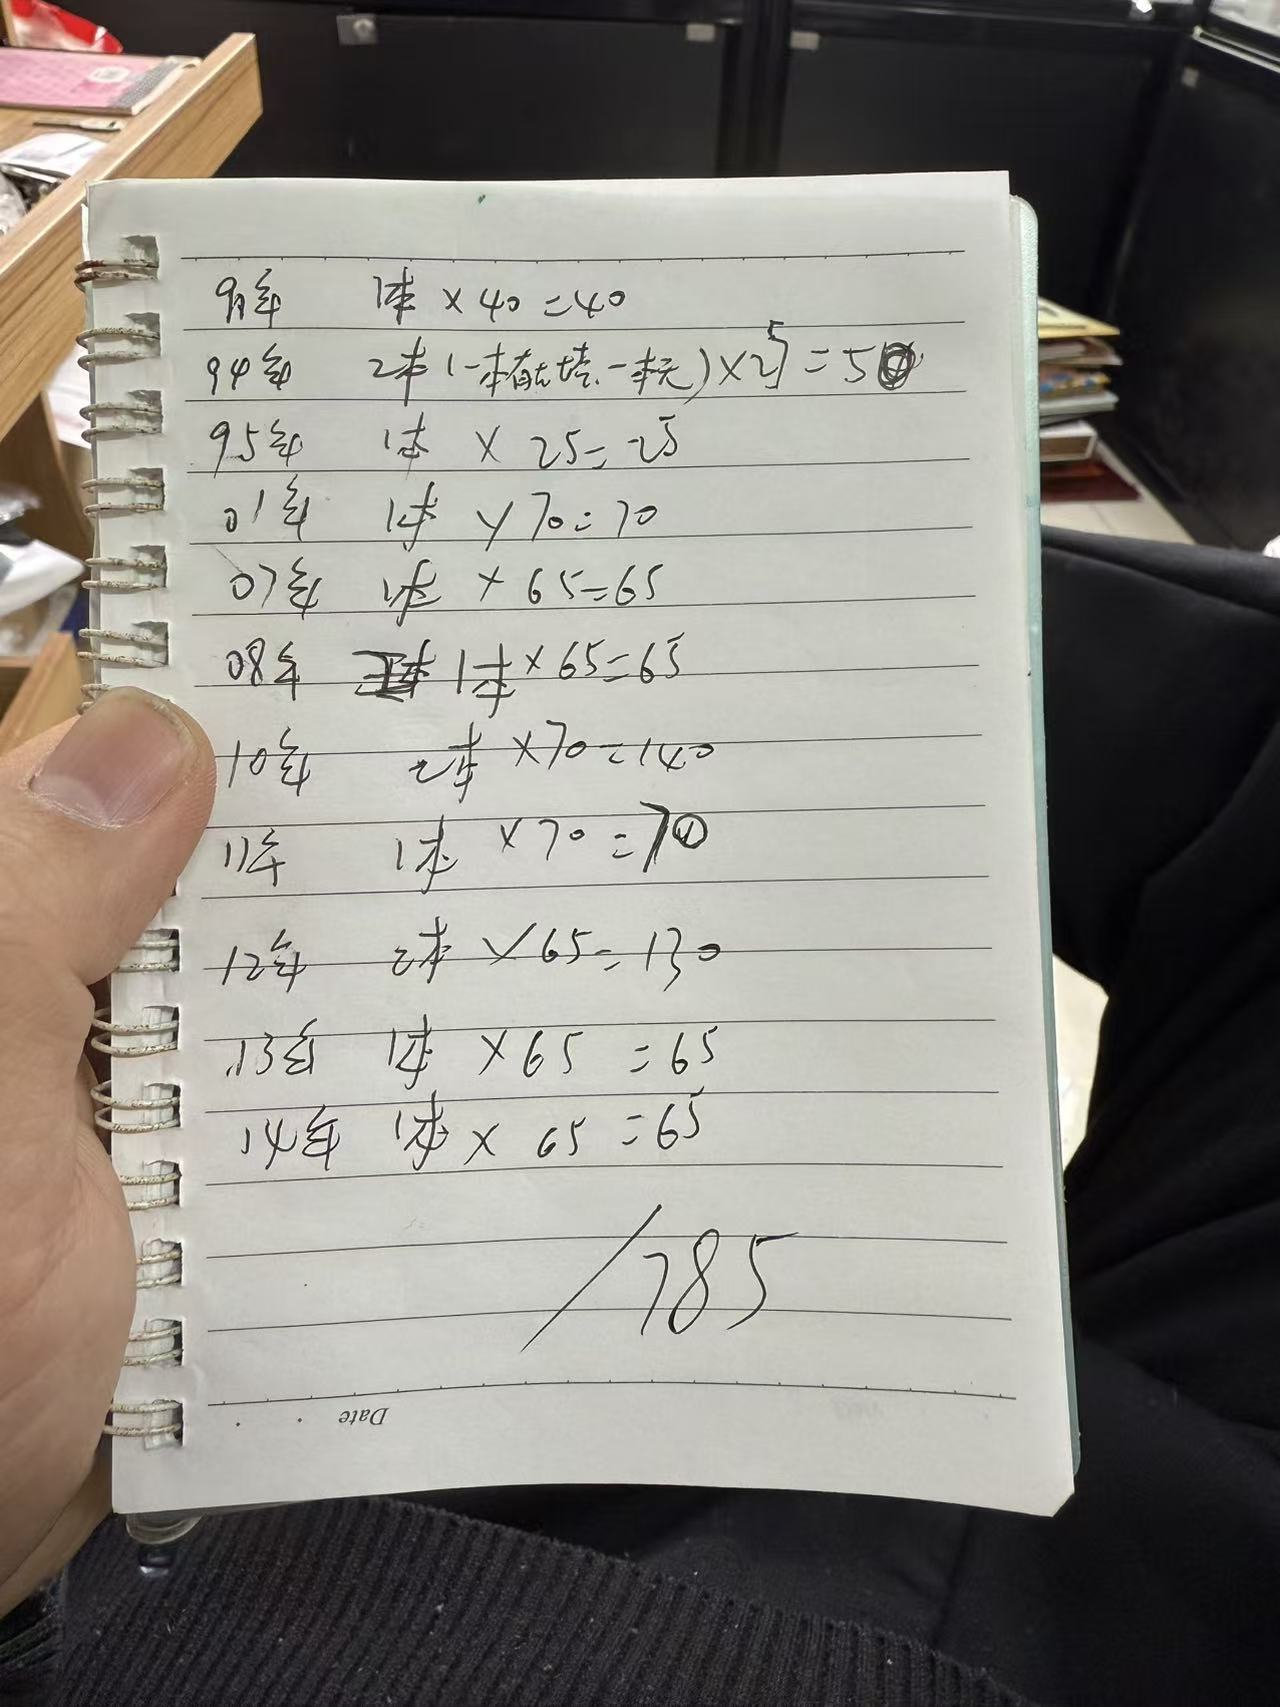 91年 1本 × 40 = 40
94年 2本(一本有志号.一本无)×25 = 50
95年 1本 × 25 = 25
01年 1本 × 70 = 70
07年 1本 × 65 = 65
08年 1本 × 65 = 65
10年 2本 × 70 = 140
11年 1本 × 70 = 70
12年 2本 × 65 = 130
13年 1本 × 65 = 65
14年 1本 × 65 = 65
/785
Date